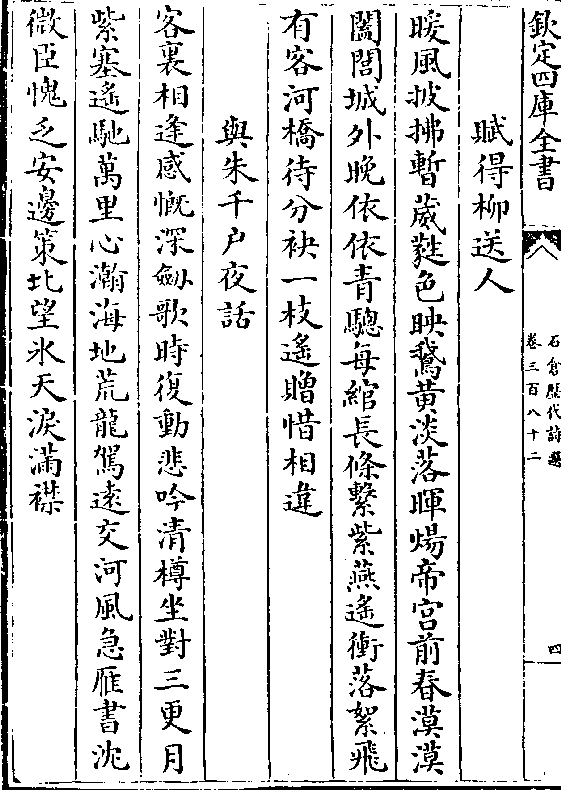 欽定四庫全書
石倉歷代詩選
卷三百八十二
四
賦得柳送人
暖風披拂暫葳蕤色映鵞黃淡落暉煬帝宫前春漠漠
闔閭城外晚依依青驄每綰長條繫紫燕遙衝落絮飛
有客河橋待分袂一枝遙贈惜相違
與朱千户夜話
客裏相逢感慨深劔歌時復動悲吟清樽坐對三更月
紫塞遙馳萬里心瀚海地荒龍駕遠交河風急雁書沈
微臣愧乏安邊策北望氷天淚滿襟